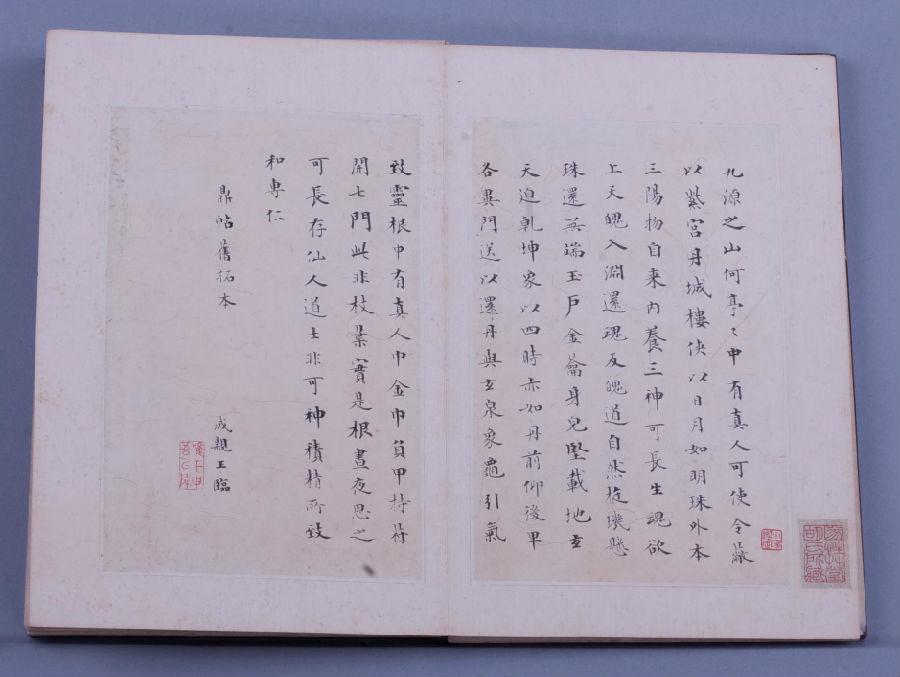 九源之山何亭〻中有真人可使令蔽
以紫宮丹城樓俠以日月如明珠外本
三陽物自来內養三神可長生魂欲
上天魄入淵還魂反魄道自然旋璣懸
珠還無端玉戶金籥身皃堅載地玄
天迫乾坤象以四時赤如丹前仰後卑
各異門送以還丹與玄泉象龜引氣
致靈根中有真人巾金巾負甲持符
開七門此非枝葉實是根晝夜思之
可長存仙人道士非可神積精所致
和専仁
鼎帖舊拓本
成親王臨